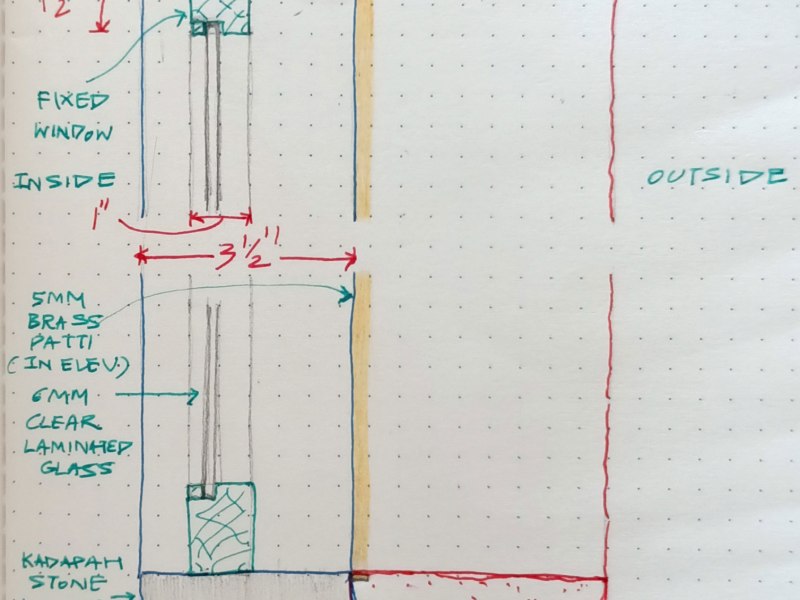 FIXED
WINDOW
INSIDE
OUTSIDE
1"
3 1/2"
5MM
BRASS
PATTI
(IN ELEV.)
6MM
CLEAR
LAMINATED
GLASS
KADAPAH
STONE